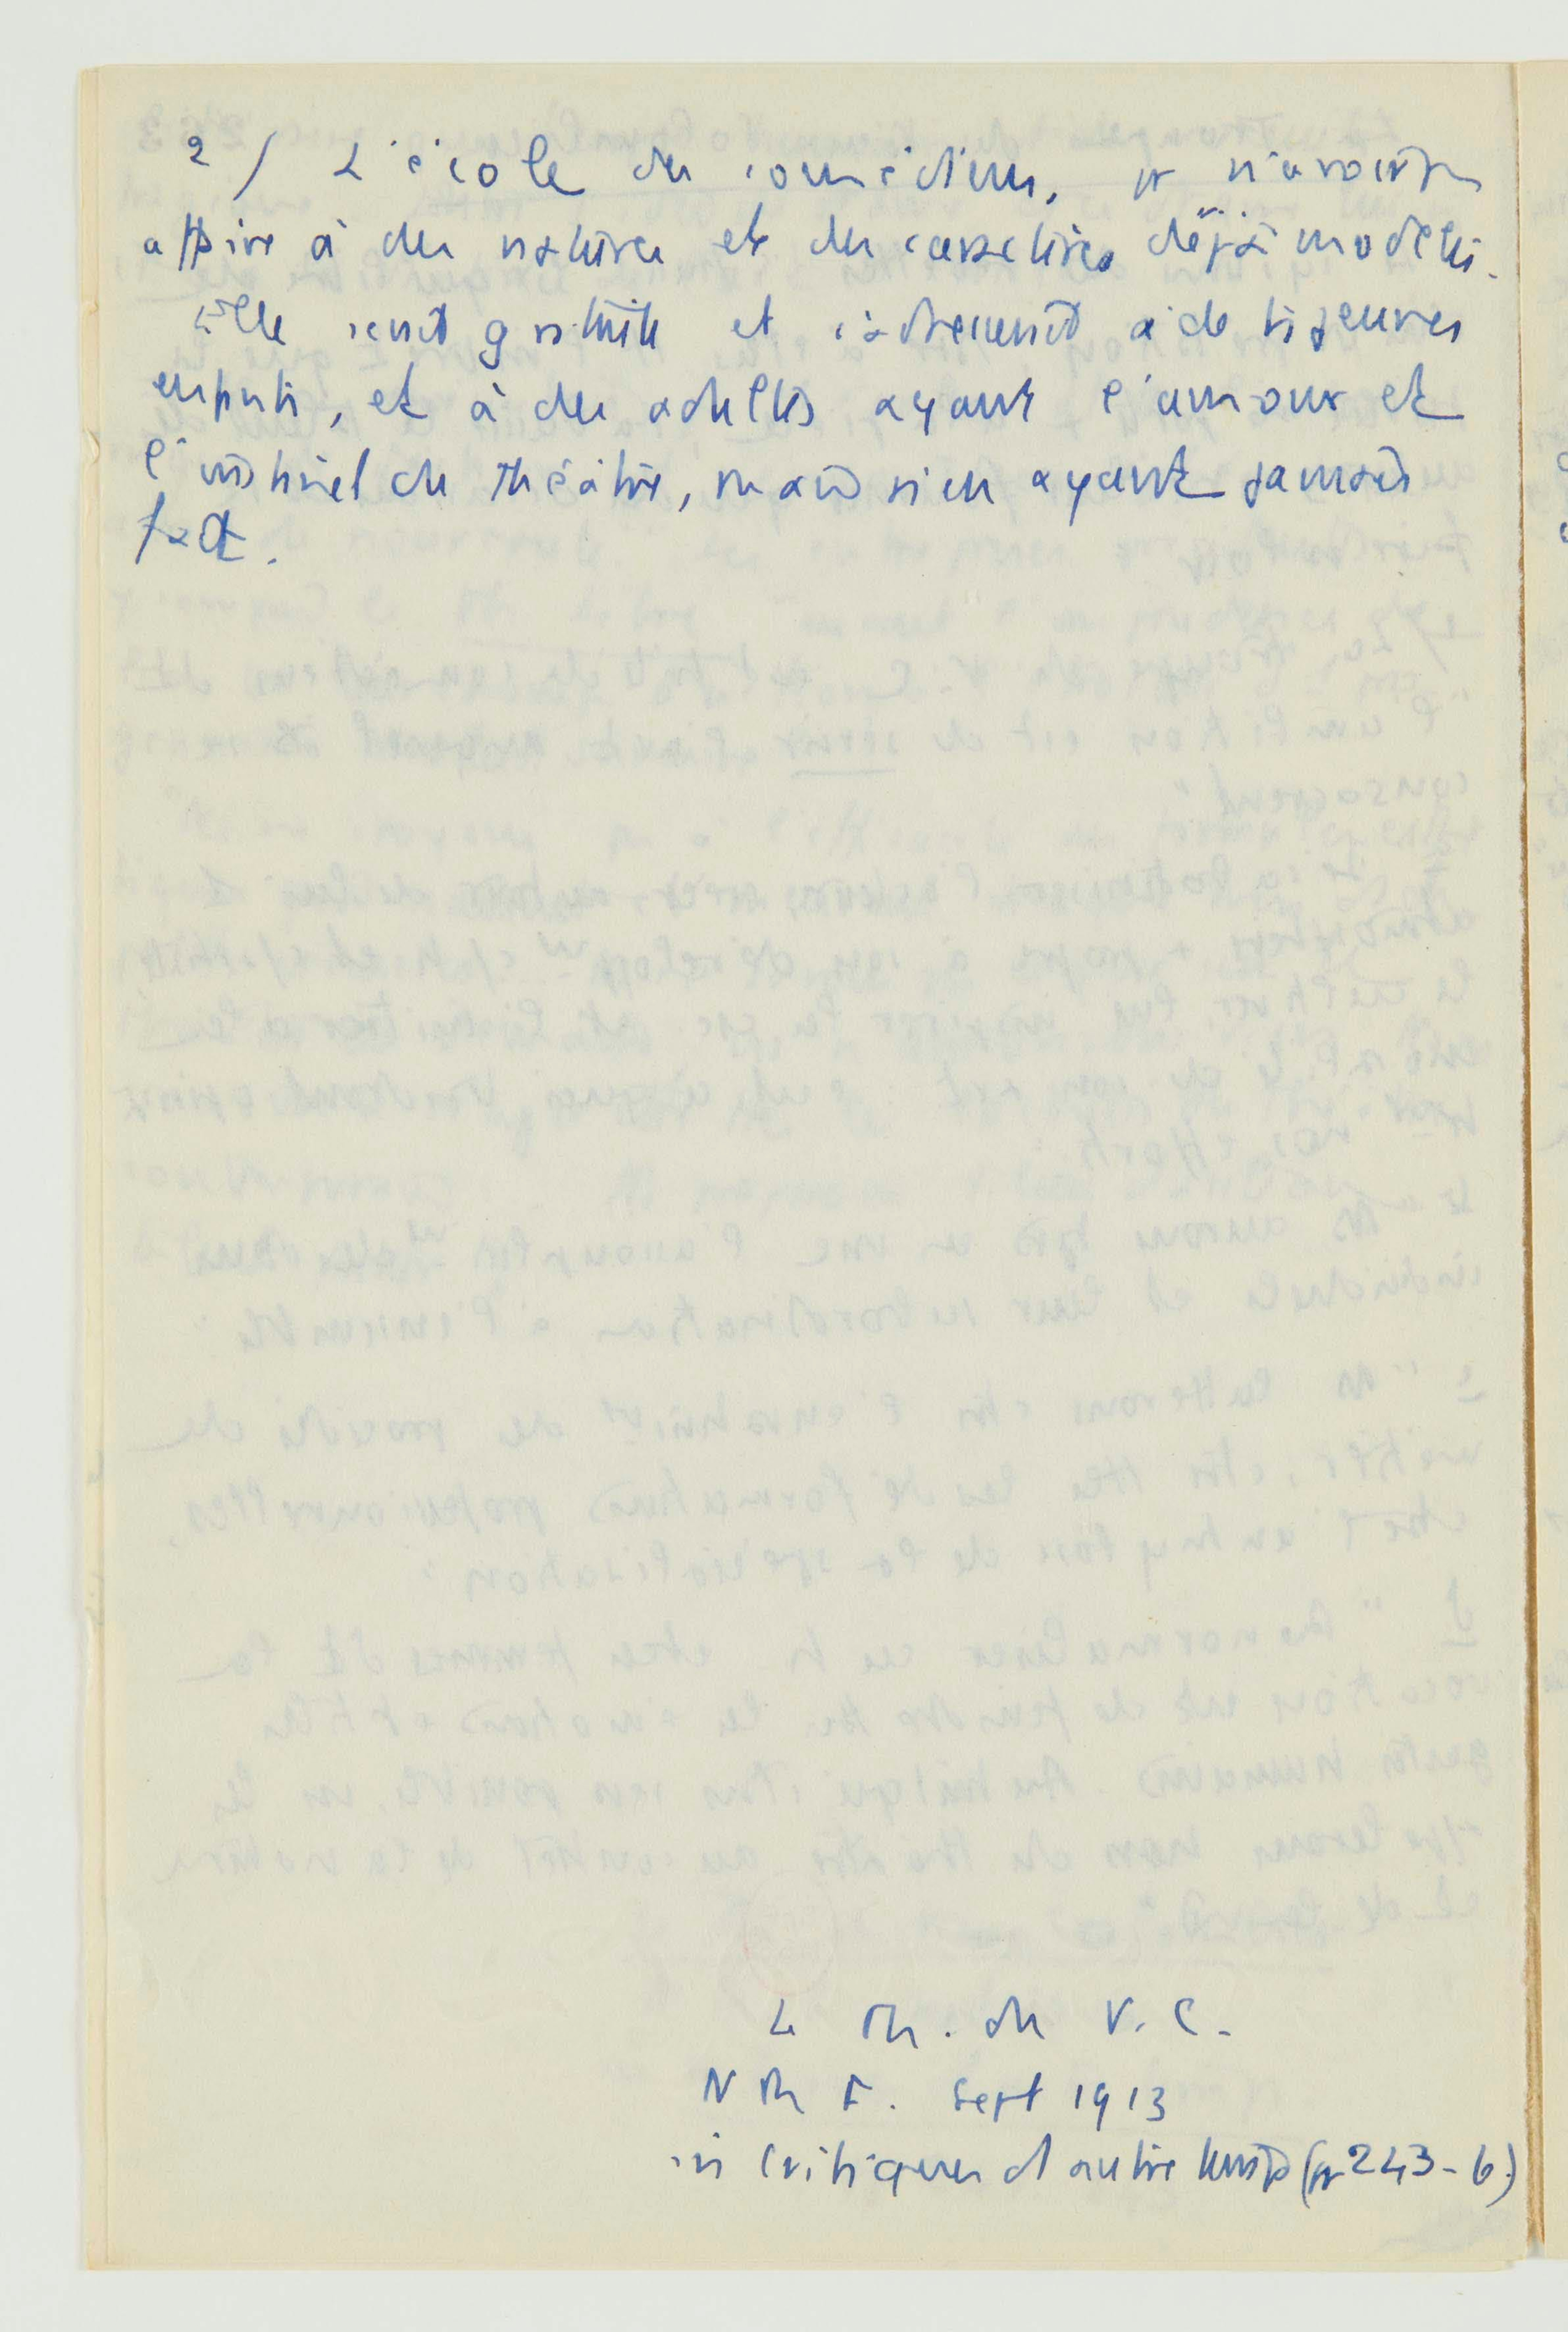 2/ L'école des comédiens, pr n'avoir pas
affaire à des natures et des caractères déjà modelés.
Elle serait gratuite et s'adresserait à de ts jeunes
enfants, et à des adultes ayant l'amour et
l'instinct du théâtre, mais n'en ayant jamais
fait.
Le Th. du V. C.
N R F. Sept 1913
in Critiques d'autre temps (pp 243-6)